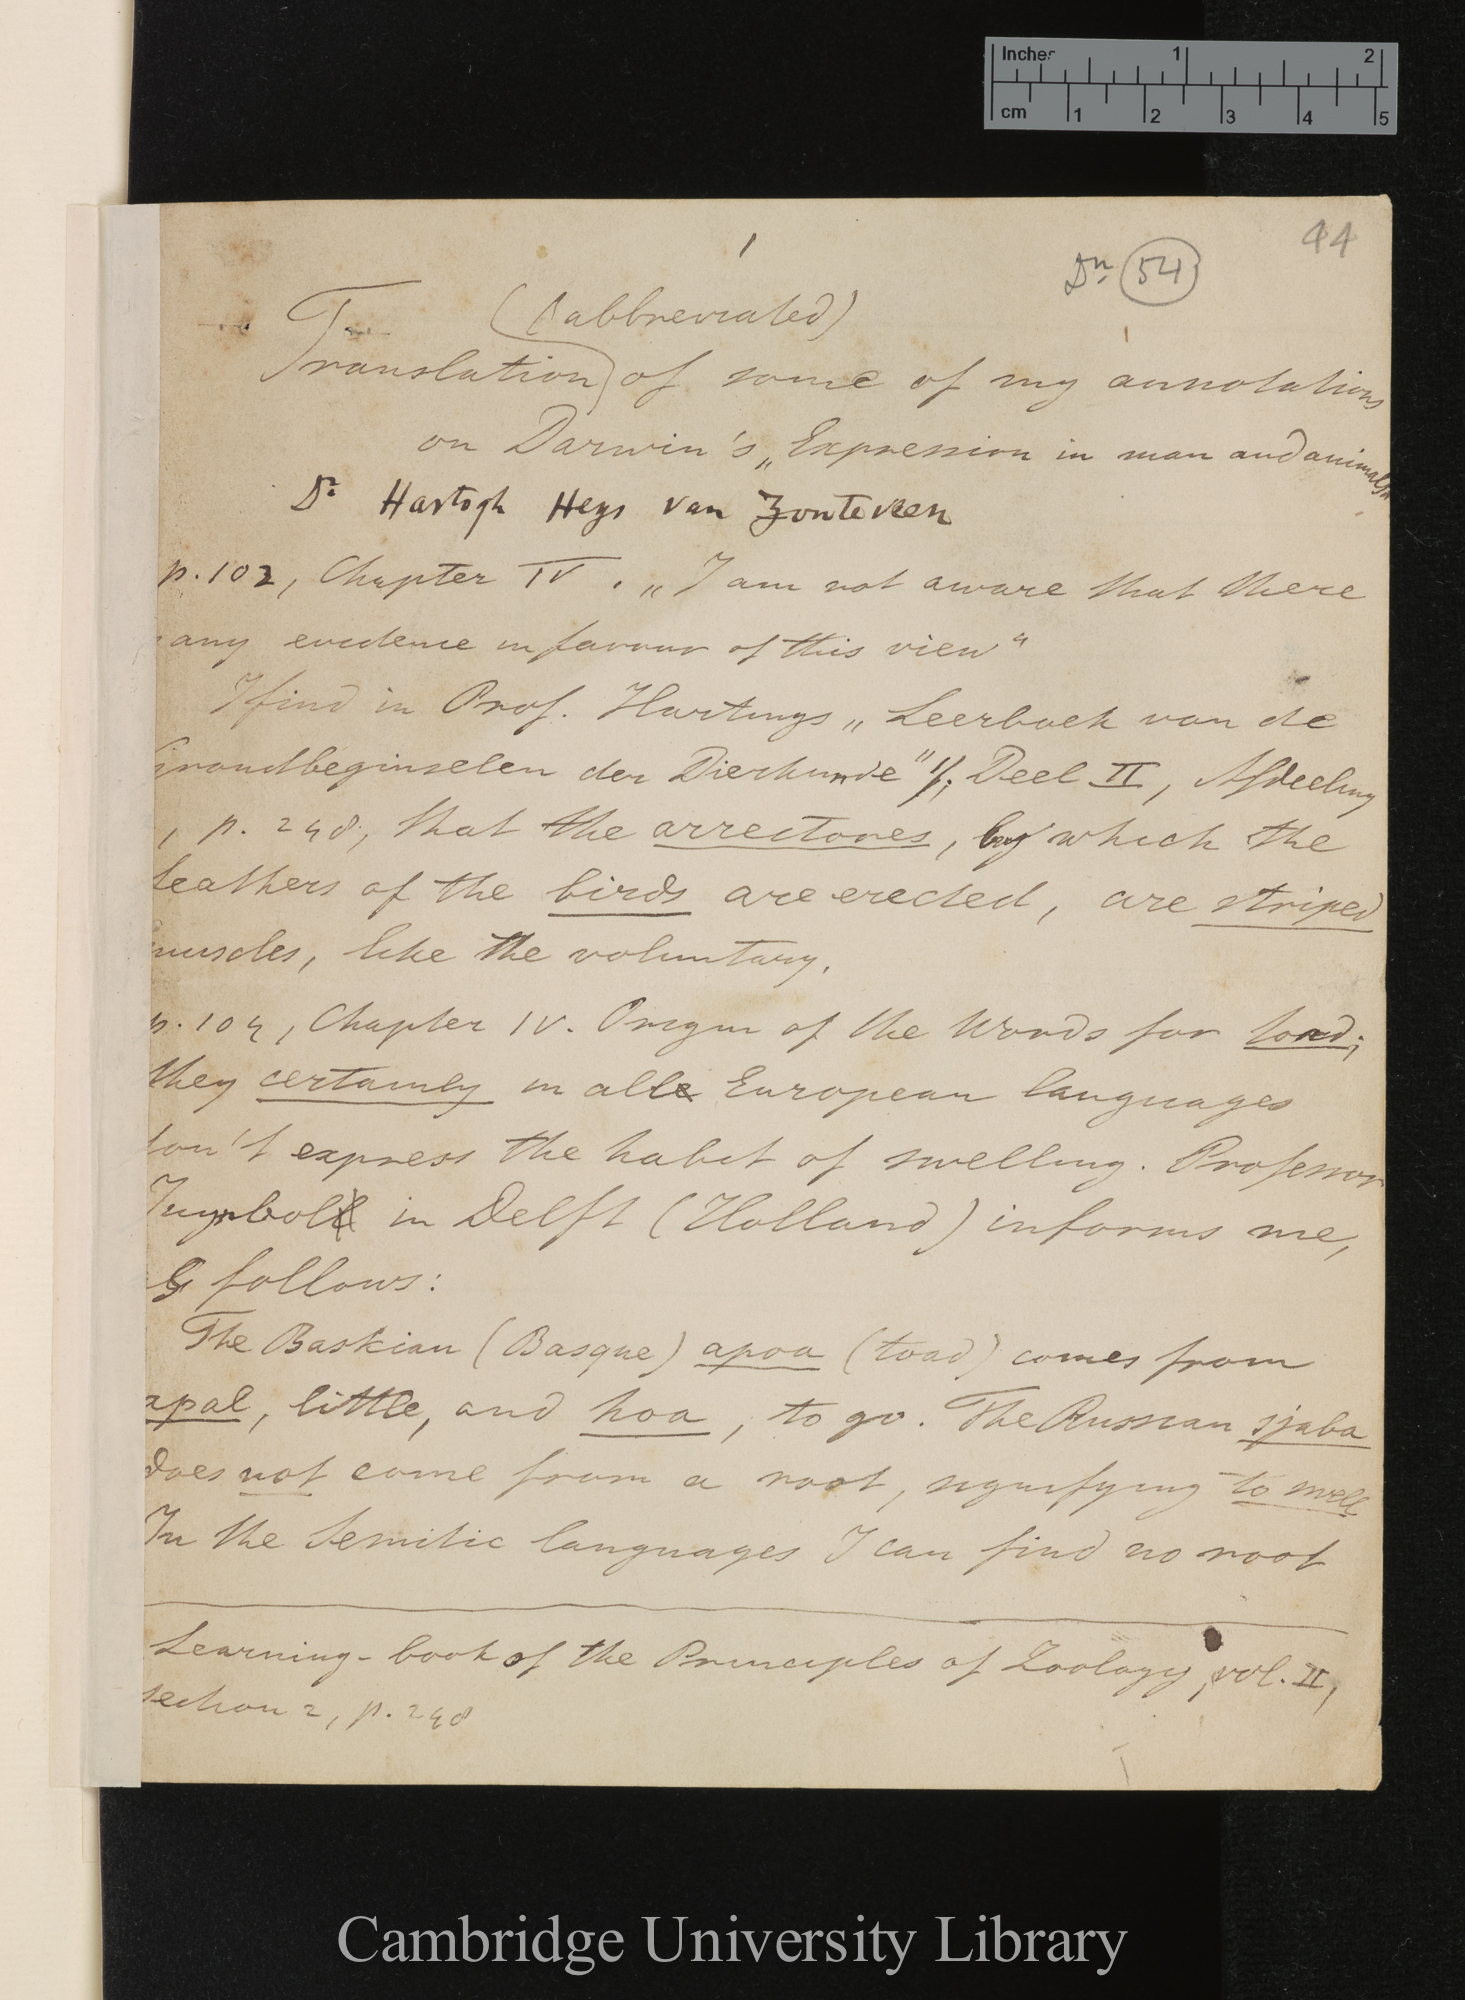 Inches 1 2
cm 1 2 3 4 5
44
1
Dn 54
(abbreviated)
Translation of some of my annotations
on Darwin's „Expression in man and animals"
Dr Hartogh Heys van Zouteveen
p. 102, Chapter IV. „I am not aware that there
any evidence in favour of this view"
I find in Prof. Hartings „Leerboek van de
Grondbeginselen der Dierkunde" 1), Deel II, Afdeeling
, p. 248, that the arrectores, by which the
feathers of the birds are erected, are striped
muscles, like the voluntary.
p. 104, Chapter IV. Origin of the Words for toad;
they certainly in all European languages
don't express the habit of swelling. Professor
in Delft (Holland) informs me,
as follows:
The Baskian (Basque) apoa (toad) comes from
apal, little, and hoa, to go. The Russian sjaba
does not come from a root, signifying to swell
In the Semitic languages I can find no root
Learning-book of the Principles of Zoology, vol. II,
section 2, p. 248
Cambridge University Library